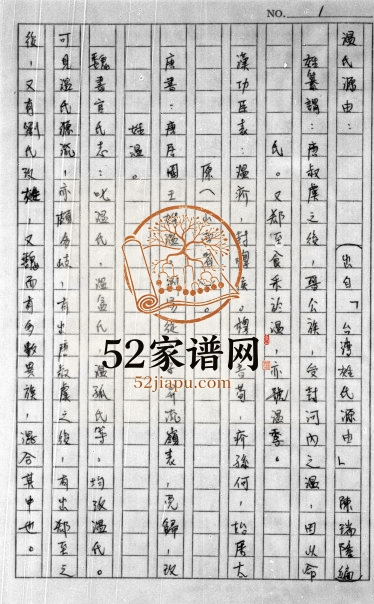 NO. 1
温氏源由：（出自「台湾姓氏源由」陳瑞隆編
姓纂謂：唐叔虞之後，晋公族，受封河内之温，因以命
氏。又郤至食采於温，亦號温季。
漢功臣表：温疥，封 侯。 苟，疥孫何，始居太
原（
唐書：康居國王 姓温， 嶺表，
姓温。
魏書官氏志：叱温氏、温盆氏、温孤氏等，均改温氏。
可見温氏源流，亦頗多歧，有出唐叔虞之後，有出郤至之
後，又有劉氏改姓，又魏而有多數異族，混合其中也。
52家谱网
52jiapu.com